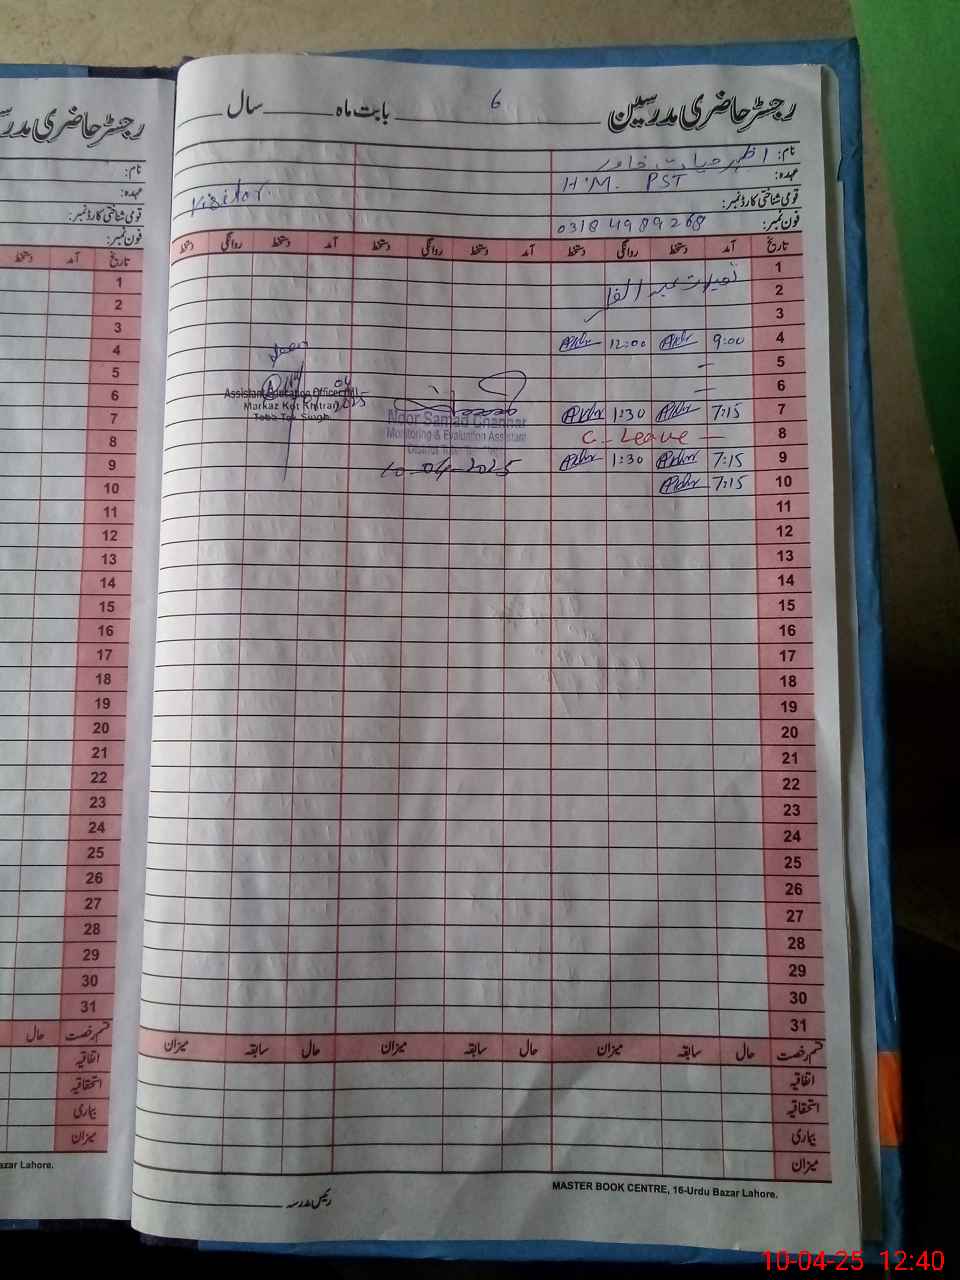 رجسٹر حاضری مدرسین 6 بابت ماہ سال
نام: اظہر حیات خاور
عہدہ: H.M. PST
Visitor.
قومی شناختی کارڈ نمبر:
فون نمبر: 0318 4989268
تاریخ آمد دستخط روانگی دستخط آمد دستخط روانگی دستخط آمد دستخط روانگی دستخط
1
2 تعطیلات عید الفطر
3
4 9:00 12:00
5 —
6 —
7 7:15 1:30
8 C. Leave —
9 7:15 1:30
10 7:15
Seen
04
2025
Assistant Education Officer (M)
Markaz Kot Khitran
Toba Tek Singh
Noor Samad Channar
Monitoring & Evaluation Assistant
10-04-2025
11
12
13
14
15
16
17
18
19
20
21
22
23
24
25
26
27
28
29
30
31
قسم رخصت حال سابقہ میزان حال سابقہ میزان حال سابقہ میزان
اتفاقیہ
استحقاقیہ
بیماری
میزان
MASTER BOOK CENTRE, 16-Urdu Bazar Lahore.
رئیس مدرسہ
رجسٹر حاضری مدرس
نام:
عہدہ:
قومی شناختی کارڈ نمبر:
فون نمبر:
تاریخ آمد دستخط
1
2
3
4
5
6
7
8
9
10
11
12
13
14
15
16
17
18
19
20
21
22
23
24
25
26
27
28
29
30
31
قسم رخصت حال
اتفاقیہ
استحقاقیہ
بیماری
میزان
azar Lahore.
10-04-25 12:40